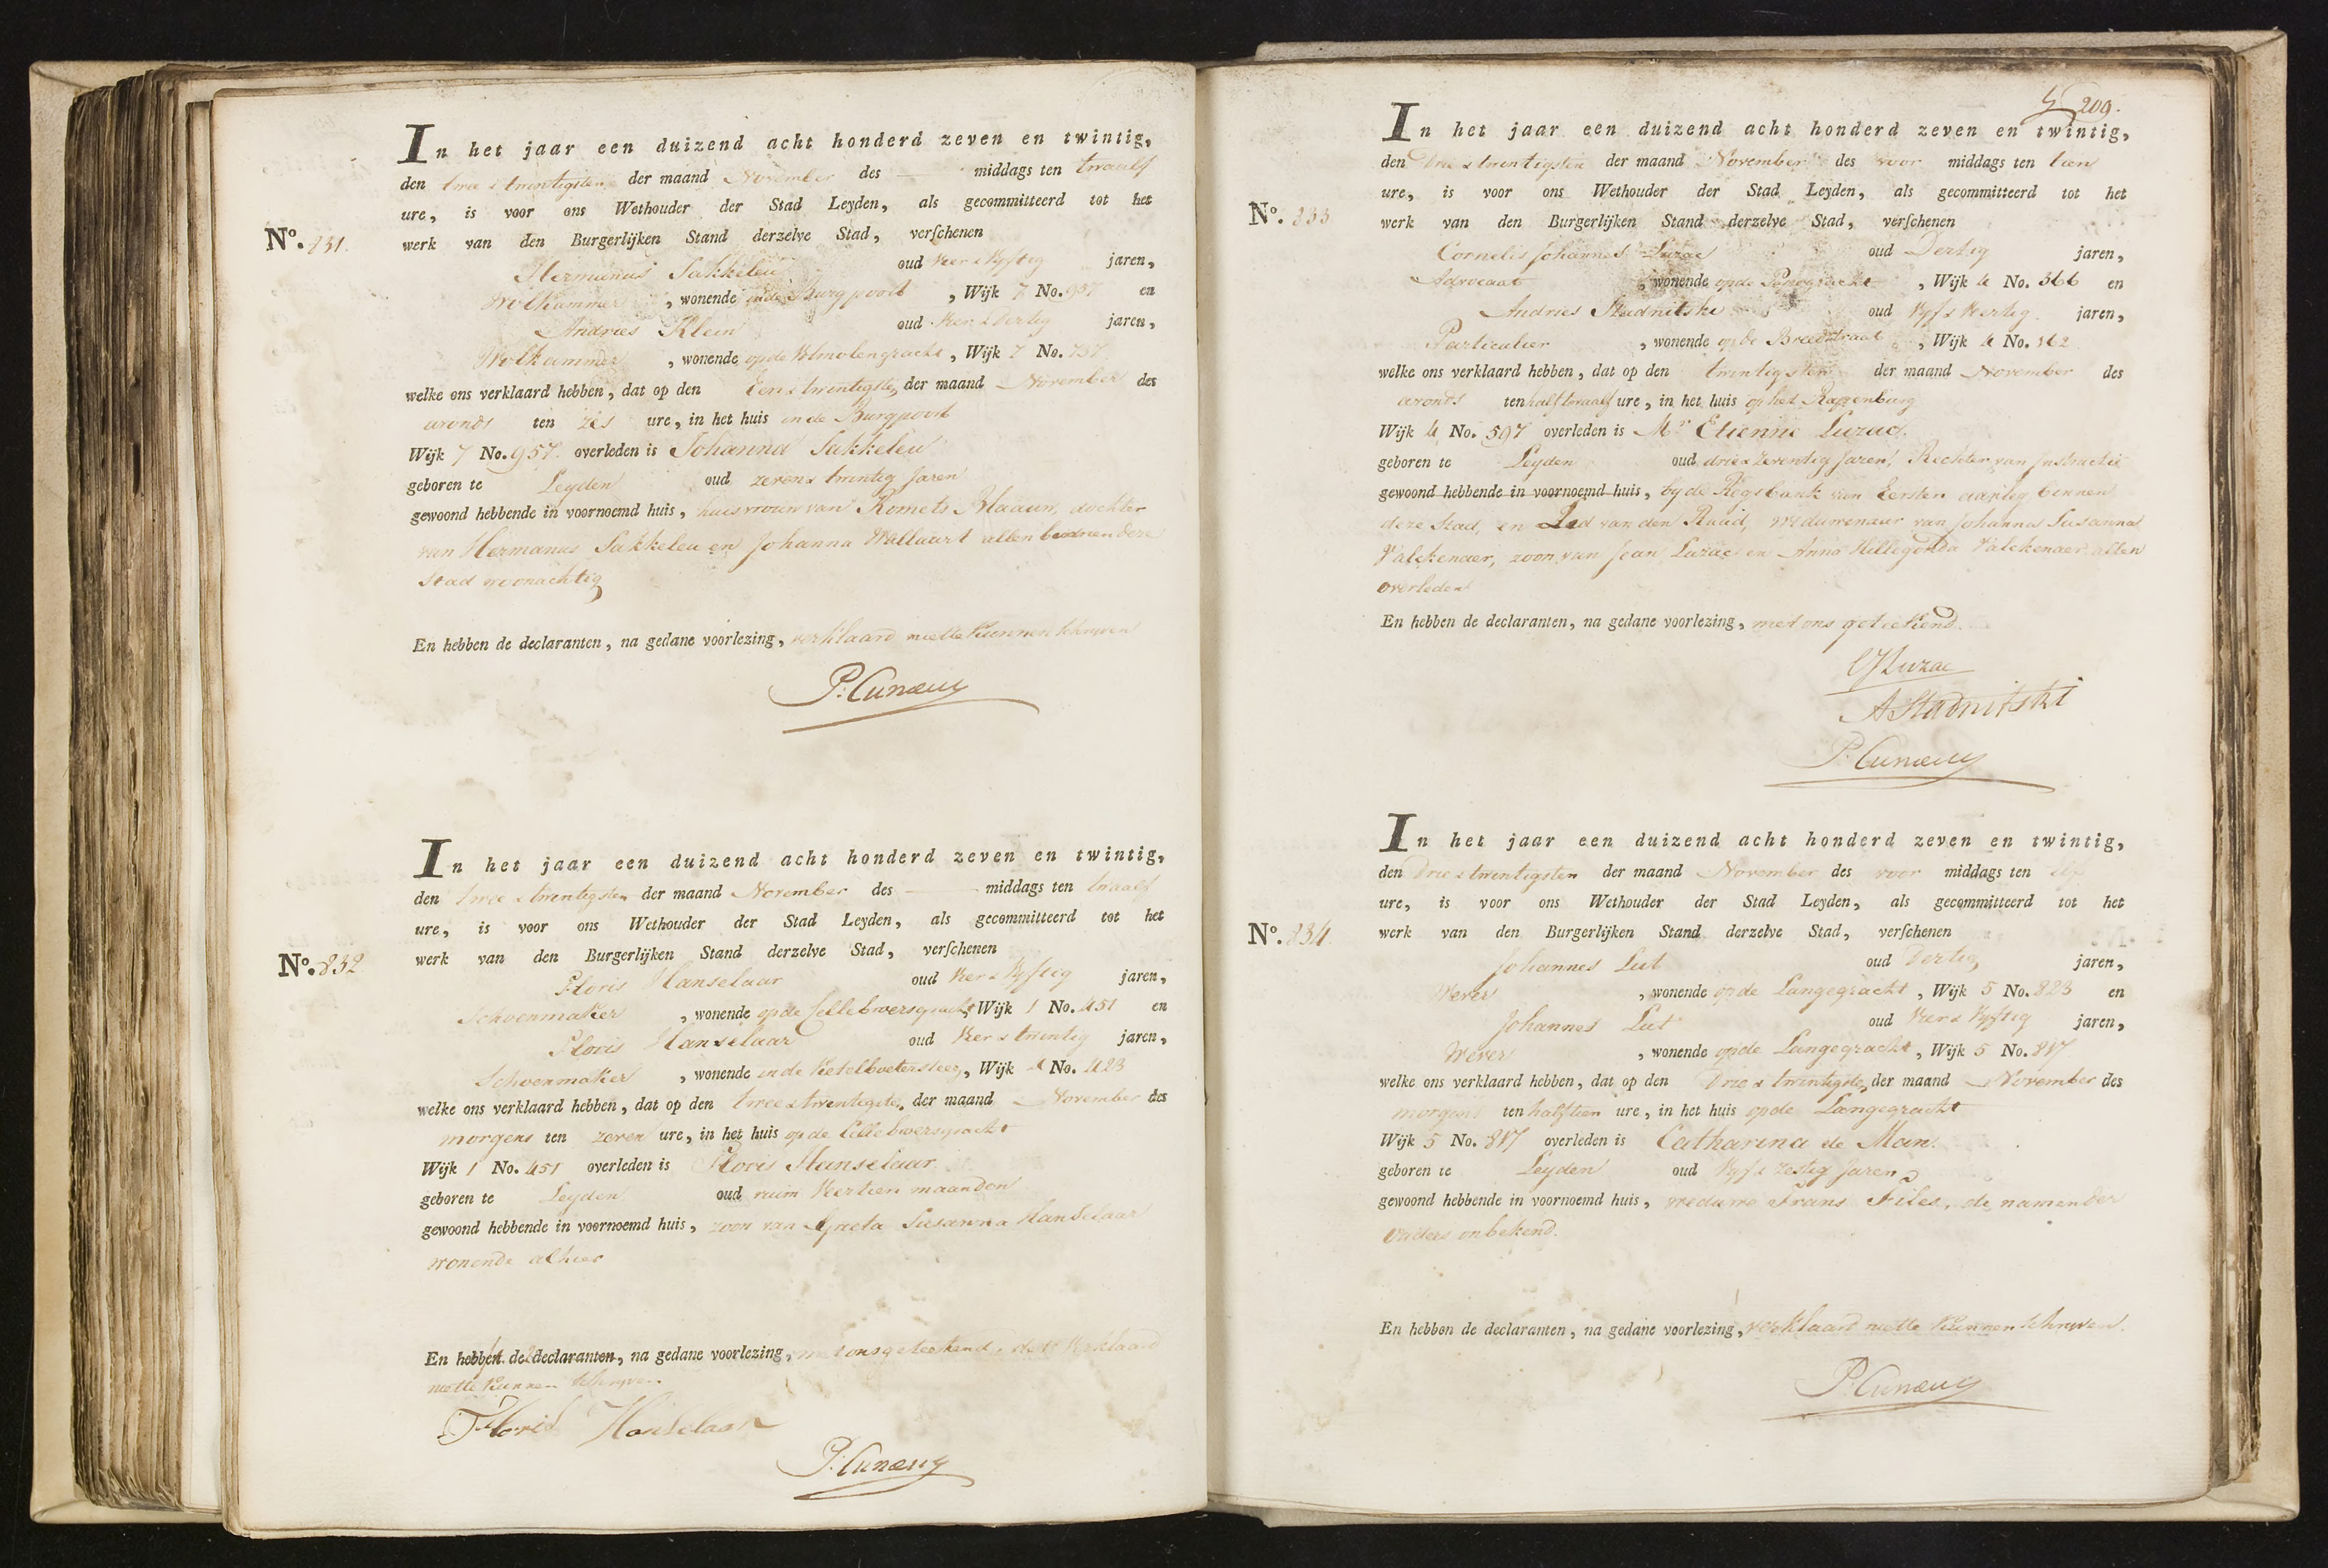 In het jaar een duizend acht honderd zeven en twintig,
den twee & twintigsten der maand November des — middags ten twaalf
ure, is voor ons Wethouder der Stad Leyden, als gecommitteerd tot het
No. 831. werk van den Burgerlijken Stand derzelve Stad, verschenen
Hermanus Sakkeleu oud Vier & Vyftig jaren,
Wolkammer, wonende in de Burgpoort, Wijk 7 No. 957 en
Andries Klein oud Vier & Dertig jaren,
Wolkammer, wonende op de Volmolengracht, Wijk 7 No. 737
welke ons verklaard hebben, dat op den Een & twintigste der maand November des
avonds ten zes ure, in het huis in de Burgpoort
Wijk 7 No. 957. overleden is Johanna Sakkeleu
geboren te Leyden oud zeven & twintig Jaren
gewoond hebbende in voornoemd huis, huisvrouw van Romets Blaauw, dochter
van Hermanus Sakkeleu en Johanna Wallaart allen binnen deze
Stad woonachtig
En hebben de declaranten, na gedane voorlezing, verklaard niet te kunnen schryven
P. Cunaeus
In het jaar een duizend acht honderd zeven en twintig,
den twee & twintigsten der maand November des — middags ten twaalf
ure, is voor ons Wethouder der Stad Leyden, als gecommitteerd tot het
No. 832 werk van den Burgerlijken Stand derzelve Stad, verschenen
Floris Hanselaar oud Vier & Vyftig jaren,
Schoenmaker, wonende op de Cellebroersgracht, Wijk 1 No. 451 en
Floris Hanselaar oud Vier & twintig jaren,
Schoenmaker, wonende in de Ketelboetersteeg, Wijk No. 423
welke ons verklaard hebben, dat op den twee & twintigste der maand November des
morgens ten zeven ure, in het huis op de Cellebroersgracht
Wijk 1 No. 451 overleden is Floris Hanselaar
geboren te Leyden oud ruim Veertien maanden
gewoond hebbende in voornoemd huis, zoon van Agneta Susanna Hanselaar
wonende alhier
En hebben de declaranten, na gedane voorlezing, met ons geteekend, de verklaard
niet te kunnen schryven
Floris Hanselaar
P. Cunaeus
209.
In het jaar een duizend acht honderd zeven en twintig,
den Drie & twintigsten der maand November des voor middags ten tien
ure, is voor ons Wethouder der Stad Leyden, als gecommitteerd tot het
No. 833 werk van den Burgerlijken Stand derzelve Stad, verschenen
Cornelis Johannes Luzac oud Dertig jaren,
Advocaat, wonende op de Papegracht, Wijk 4 No. 366 en
Andries Stadnitski oud Vyf & Veertig jaren,
Particulier, wonende op de Breedstraat, Wijk 4 No. 162
welke ons verklaard hebben, dat op den twintigsten der maand November des
avonds ten half twaalf ure, in het huis op het Rapenburg
Wijk 4 No. 597 overleden is Mr. Etienne Luzac.
geboren te Leyden oud drie & Zeventig Jaren, Rechter van Instructie
gewoond hebbende in voornoemd huis, by de Regtbank van Eersten aanleg binnen
deze Stad, en Lid van den Raad, weduwenaar van Johanna Susanna
Valckenaer, zoon van Jean Luzac en Anna Hillegonda Valckenaer allen
overleden
En hebben de declaranten, na gedane voorlezing, met ons geteekend.
CJ Luzac
A Stadnitski
P. Cunaeus
In het jaar een duizend acht honderd zeven en twintig,
den Drie & twintigsten der maand November des voor middags ten elf
ure, is voor ons Wethouder der Stad Leyden, als gecommitteerd tot het
No. 834. werk van den Burgerlijken Stand derzelve Stad, verschenen
Johannes Lut oud Dertig jaren,
Wever, wonende op de Langegracht, Wijk 5 No. 823 en
Johannes Lut oud Vier & Vyftig jaren,
Wever, wonende op de Langegracht, Wijk 5 No. 817
welke ons verklaard hebben, dat op den Drie & twintigste der maand November des
morgens ten half tien ure, in het huis op de Langegracht
Wijk 5 No. 817 overleden is Catharina de Man.
geboren te Leyden oud Vyf & Zestig Jaren
gewoond hebbende in voornoemd huis, weduwe Frans Files, de namen der
ouders onbekend.
En hebben de declaranten, na gedane voorlezing, verklaard niet te kunnen schryven.
P. Cunaeus